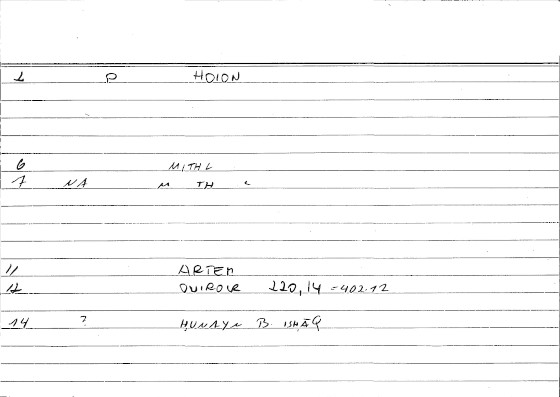 1 P HOION
6 MITHL
7 NA M TH L
11 ARTEM
12 220,14 = 402.12
14 ? ḤUNAYN B. ISḤĀQ